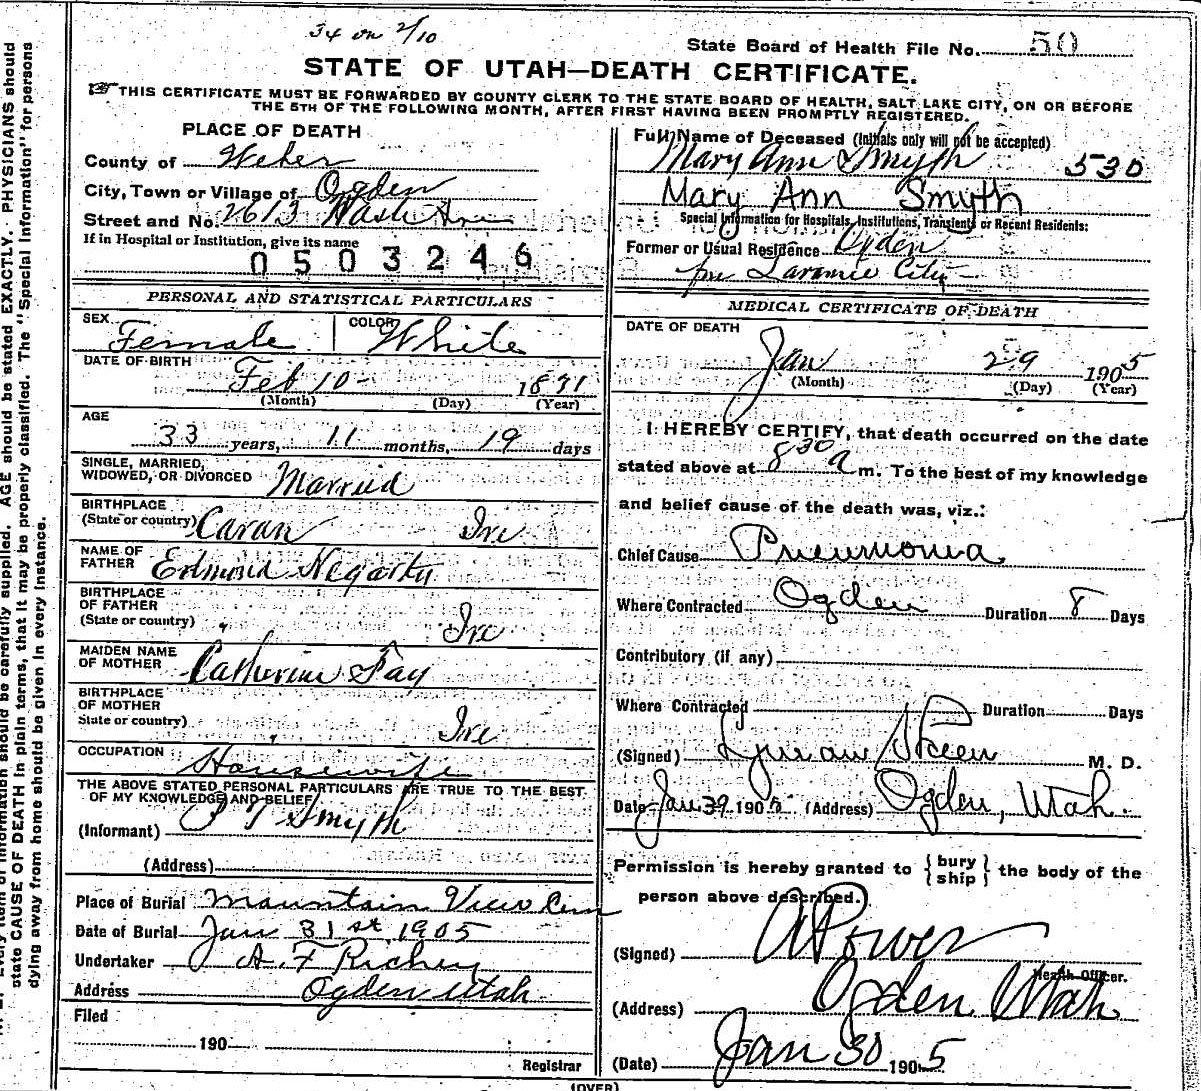 34 on 2/10
State Board of Health File No. 50
STATE OF UTAH—DEATH CERTIFICATE.
THIS CERTIFICATE MUST BE FORWARDED BY COUNTY CLERK TO THE STATE BOARD OF HEALTH, SALT LAKE CITY, ON OR BEFORE
THE 5TH OF THE FOLLOWING MONTH, AFTER FIRST HAVING BEEN PROMPTLY REGISTERED.
PLACE OF DEATH
County of Weber
City, Town or Village of Ogden
Street and No. 2613 Wash Ave
If in Hospital or Institution, give its name
0503246
Full Name of Deceased (Initials only will not be accepted)
Mary Ann Smyth 530
Mary Ann Smyth
Special Information for Hospitals, Institutions, Transients or Recent Residents:
Former or Usual Residence Ogden
Laramie City
PERSONAL AND STATISTICAL PARTICULARS
SEX Female COLOR White
DATE OF BIRTH Feb 10 1871
(Month) (Day) (Year)
AGE
33 years, 11 months, 19 days
SINGLE, MARRIED,
WIDOWED, OR DIVORCED Married
BIRTHPLACE
(State or country) Cavan Ire
NAME OF
FATHER Edmond Hegarty
BIRTHPLACE
OF FATHER
(State or country) Ire
MAIDEN NAME
OF MOTHER Catherine Fay
BIRTHPLACE
OF MOTHER
State or country) Ire
OCCUPATION Housewife
THE ABOVE STATED PERSONAL PARTICULARS ARE TRUE TO THE BEST
OF MY KNOWLEDGE AND BELIEF
(Informant) P T Smyth
(Address)
Place of Burial Mountain View Cem
Date of Burial Jan 31st 1905
Undertaker A. F Richey
Address Ogden Utah
Filed
190
Registrar
MEDICAL CERTIFICATE OF DEATH
DATE OF DEATH
Jan 29 1905
(Month) (Day) (Year)
I HEREBY CERTIFY, that death occurred on the date
stated above at 8 30 a m. To the best of my knowledge
and belief cause of the death was, viz.:
Chief Cause Pneumonia
Where Contracted Ogden Duration 8 Days
Contributory (if any)
Where Contracted Duration Days
(Signed) M. D.
Date Jan 1905 (Address) Ogden, Utah.
Permission is hereby granted to { bury ship } the body of the
person above described.
(Signed) A Power
Health Officer.
(Address) Ogden Utah
(Date) Jan 30 1905
(OVER)
state CAUSE OF DEATH in plain terms, that it may be properly classified. The "Special Information" for persons
dying away from home should be given in every instance.
information should be carefully supplied. AGE should be stated EXACTLY. PHYSICIANS should